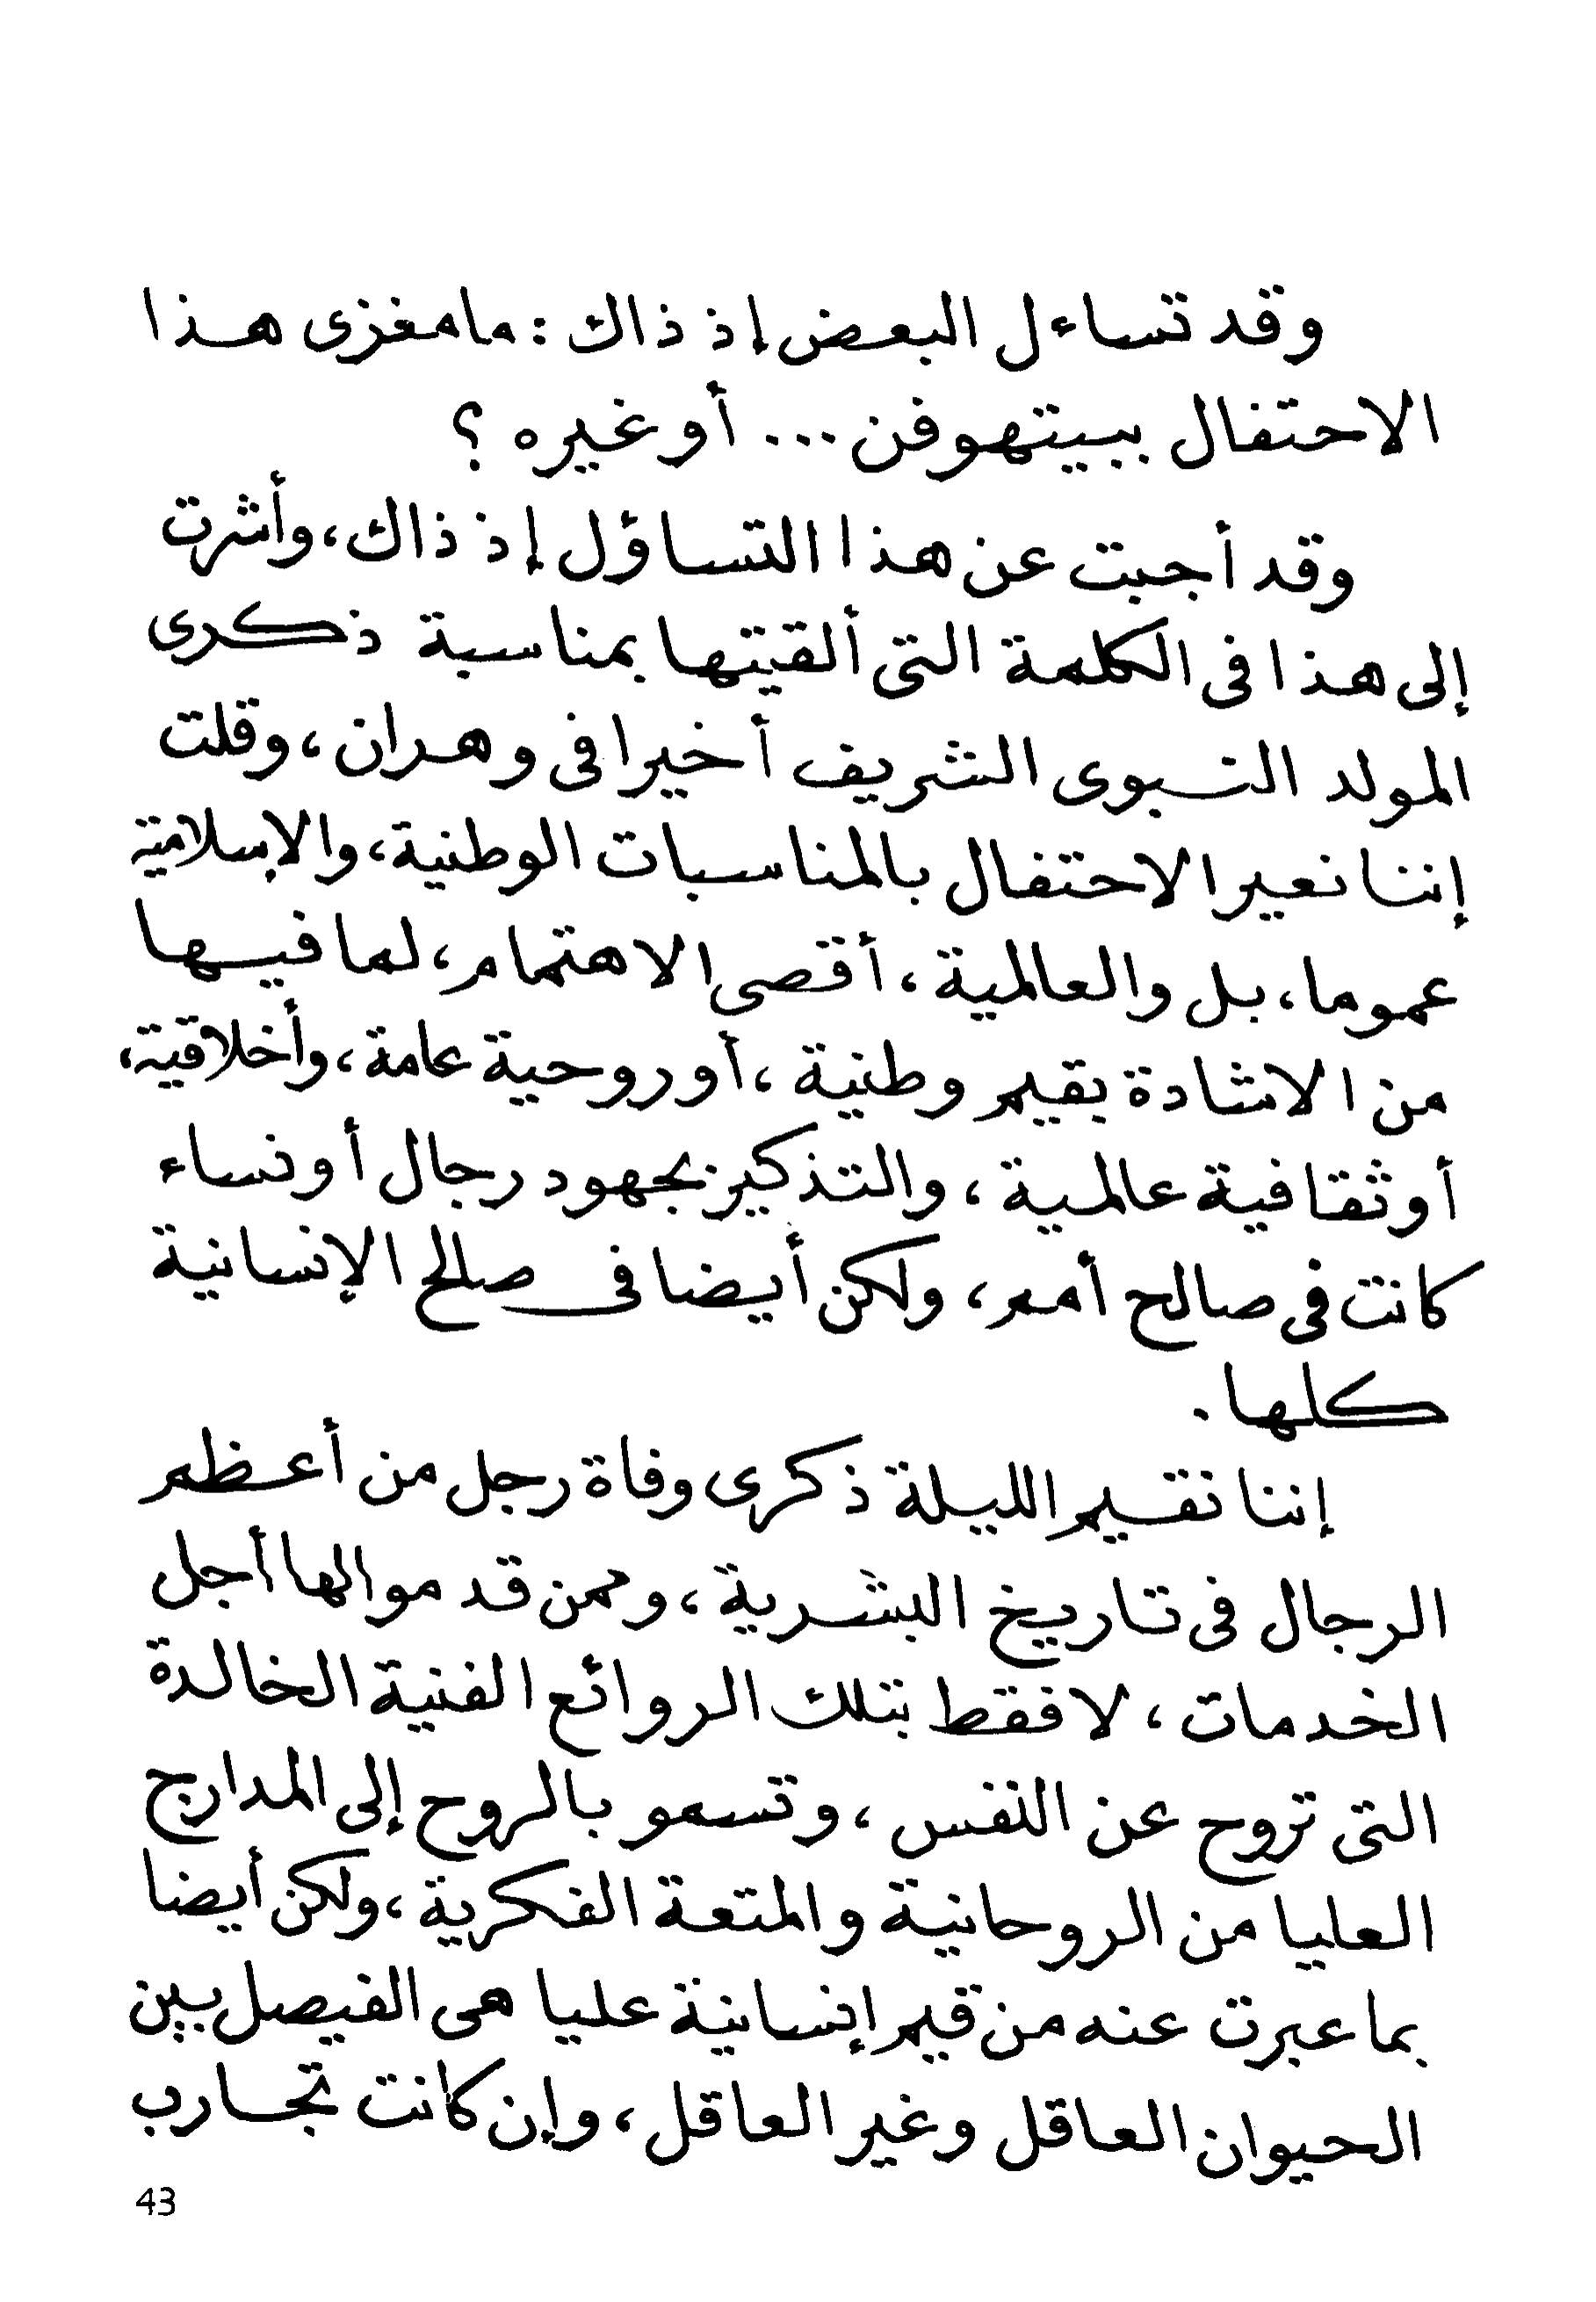 وقد تساءل البعض إذ ذاك : ما مغزى هذا
الاحتفال ببيتهوفن ... أو غيره ؟
وقد أجبت عن هذا التساؤل إذ ذاك، وأشرت
إلى هذا فى الكلمة التى ألقيتها بمناسبة ذكرى
المولد النبوى الشريف أخيرا فى وهران، وقلت
إننا نعير الاحتفال بالمناسبات الوطنية، والإسلامية
عموما، بل والعالمية، أقصى الاهتمام، لما فيها
من الاشادة بقيم وطنية، أو روحية عامة، وأخلاقية،
أو ثقافية عالمية، والتذكير بجهود رجال أو نساء
كانت فى صالح أمم، ولكن أيضا فى صالح الإنسانية
كلها.
إننا نقيم الليلة ذكرى وفاة رجل من أعظم
الرجال فى تاريخ البشرية، وممن قدموا لها أجل
الخدمات، لا فقط بتلك الروائع الفنية الخالدة
التى تروح عن النفس، وتسمو بالروح إلى المدارج
العليا من الروحانية والمتعة الفكرية، ولكن أيضا
بما عبرت عنه من قيم إنسانية عليا هى الفيصل بين
الحيوان العاقل وغير العاقل، وإن كانت تجارب
43